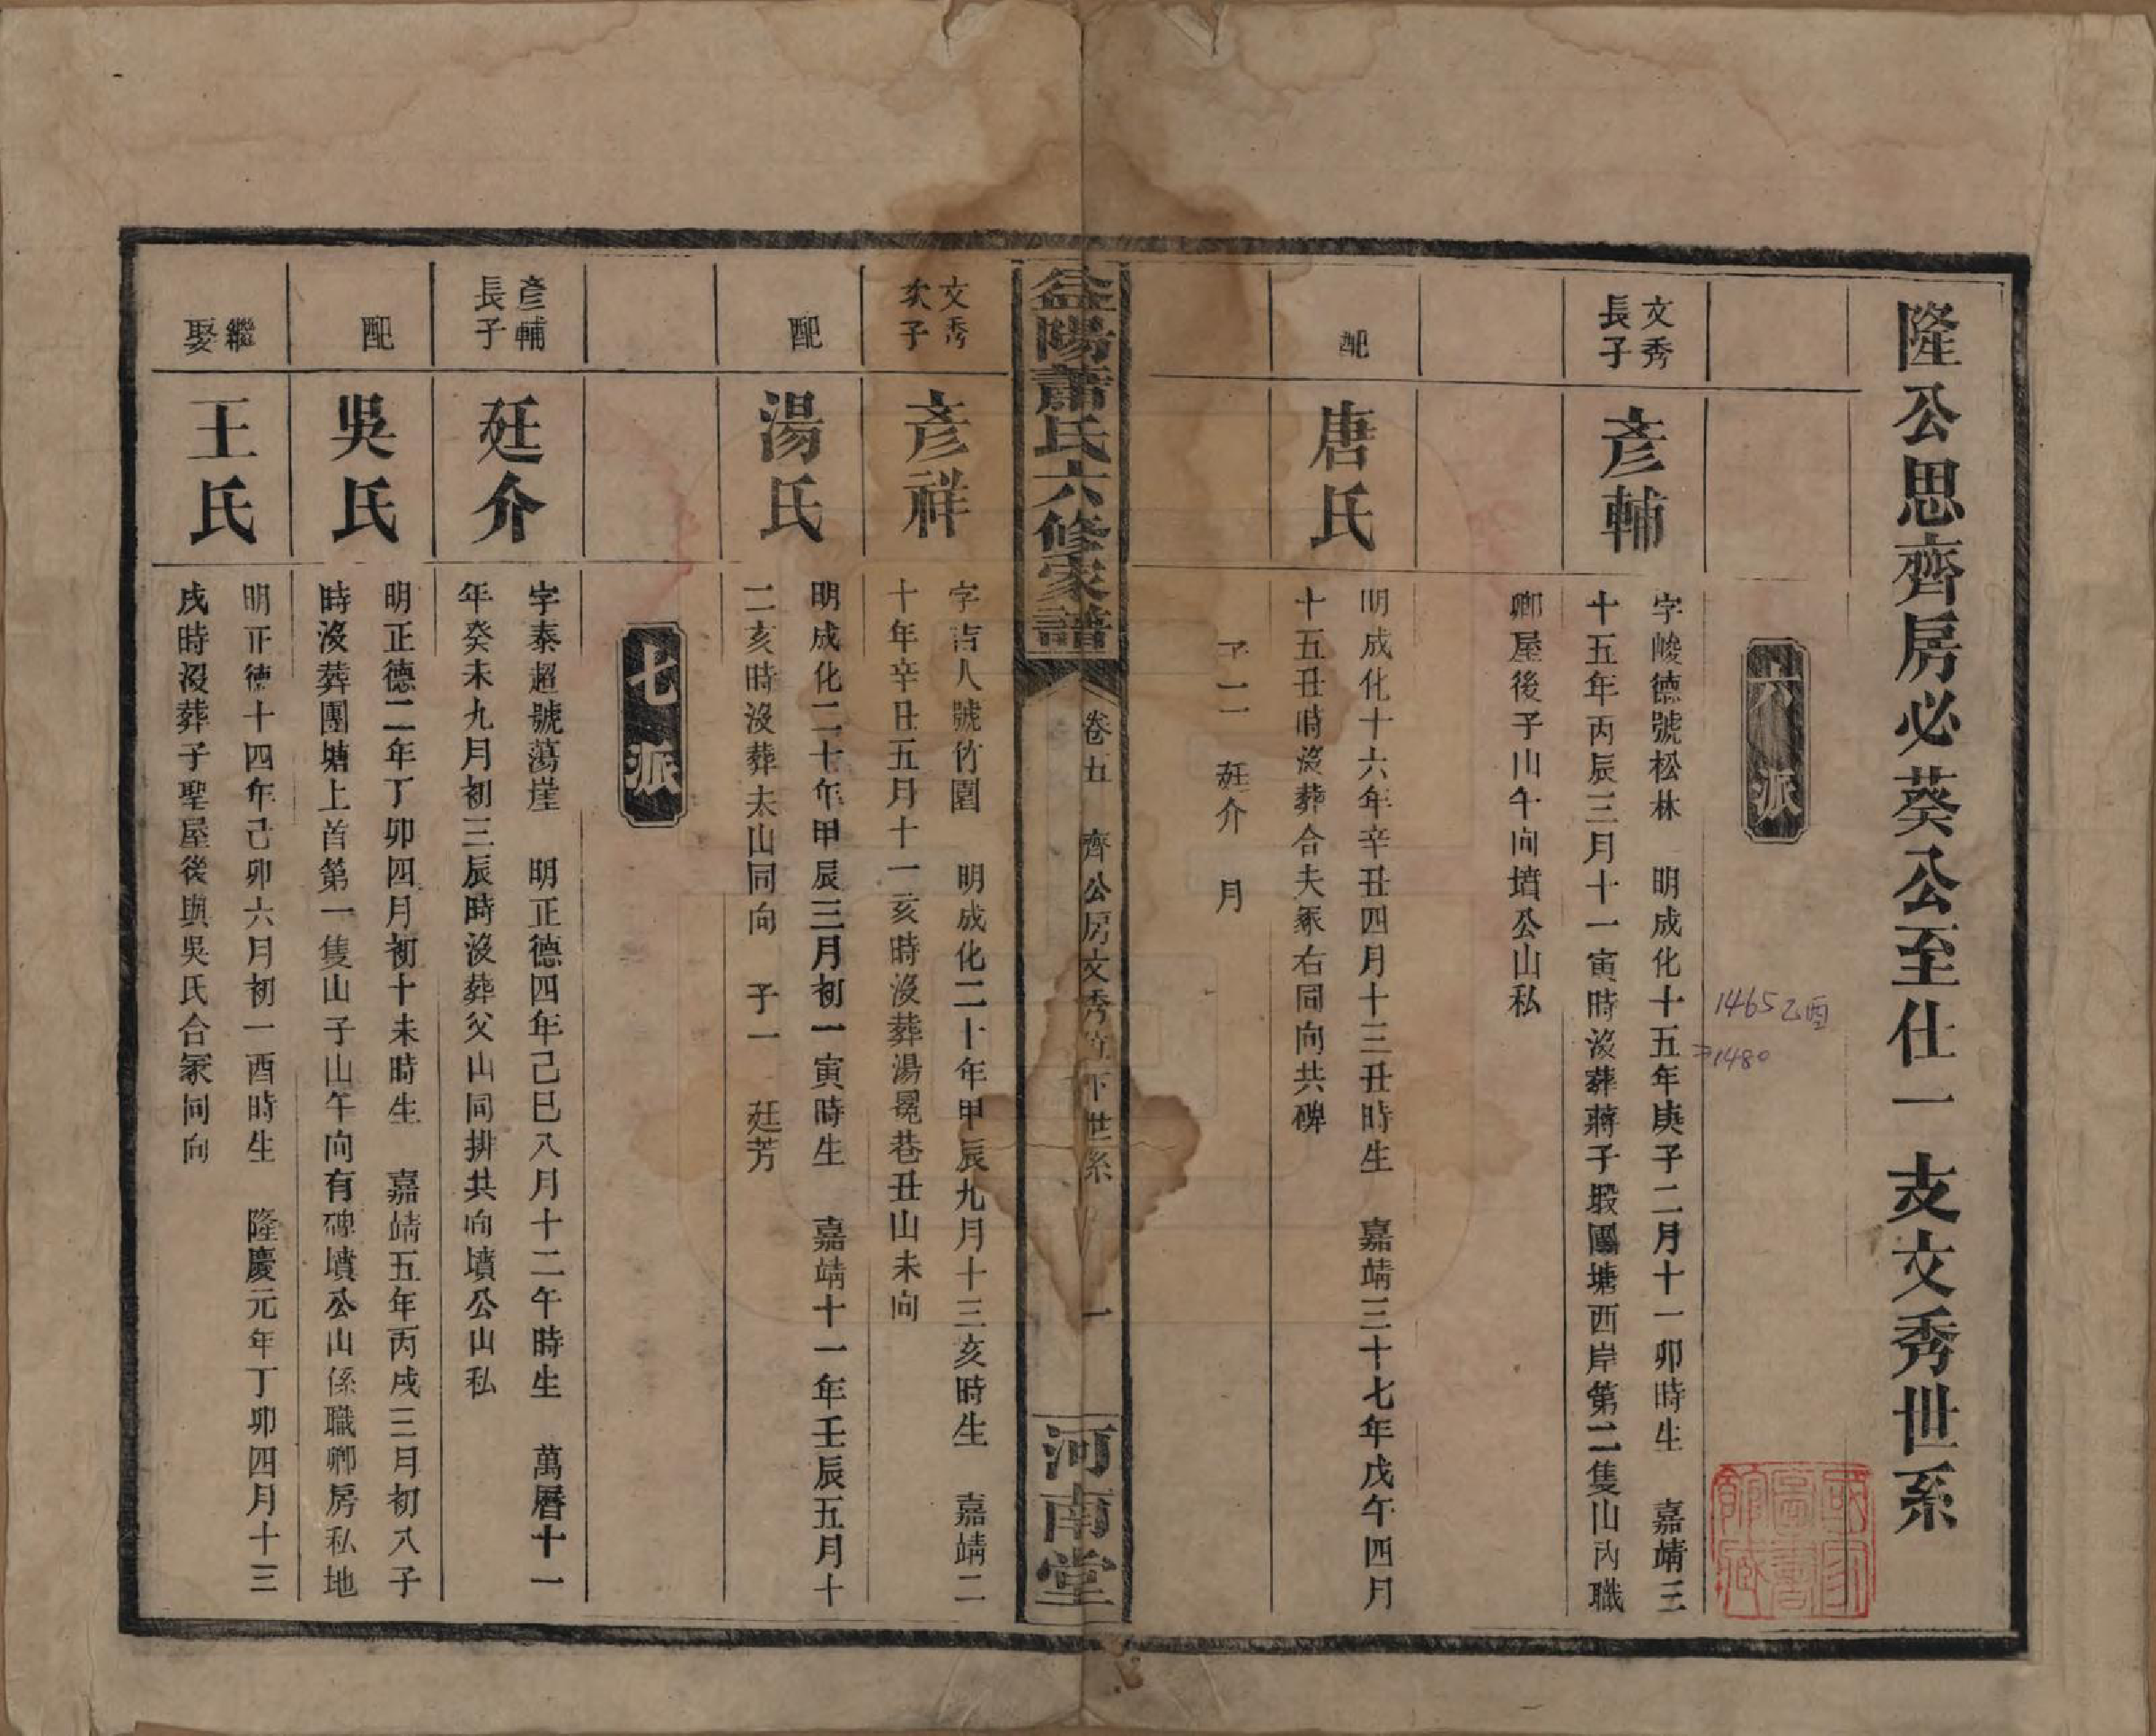 隆公思齊房必葵公至仕一支文秀世系
六派
文秀
長子
彥輔
字峻德號松林　明成化十五年庚子二月十一卯時生　嘉靖三
十五年丙辰三月十一寅時沒葬蔣子塅團塘西岸第二隻山內職
卿屋後子山午向墳公山私
1465乙酉
1480
配
唐氏
明成化十六年辛丑四月十三丑時生　嘉靖三十七年戊午四月
十五丑時沒葬合夫冢右同向共碑
子二　廷介　月
益陽蕭氏六修家譜
卷五　齊公房文秀位下世系　一
河南堂
文秀
次子
彥祥
字吉人號竹園　明成化二十年甲辰九月十三亥時生　嘉靖二
十年辛丑五月十一亥時沒葬湯冕巷丑山未向
配
湯氏
明成化二十年甲辰三月初一寅時生　嘉靖十一年壬辰五月十
二亥時沒葬太山同向　子一　廷芳
七派
彥輔
長子
廷介
字泰超號蕩崖　明正德四年己巳八月十二午時生　萬曆十一
年癸未九月初三辰時沒葬父山同排共向墳公山私
配
吳氏
明正德二年丁卯四月初十未時生　嘉靖五年丙戌三月初八子
時沒葬團塘上首第一隻山子山午向有碑墳公山係職卿房私地
繼
娶
王氏
明正德十四年己卯六月初一酉時生　隆慶元年丁卯四月十三
戌時沒葬子聖屋後與吳氏合冢同向
國家圖書館藏